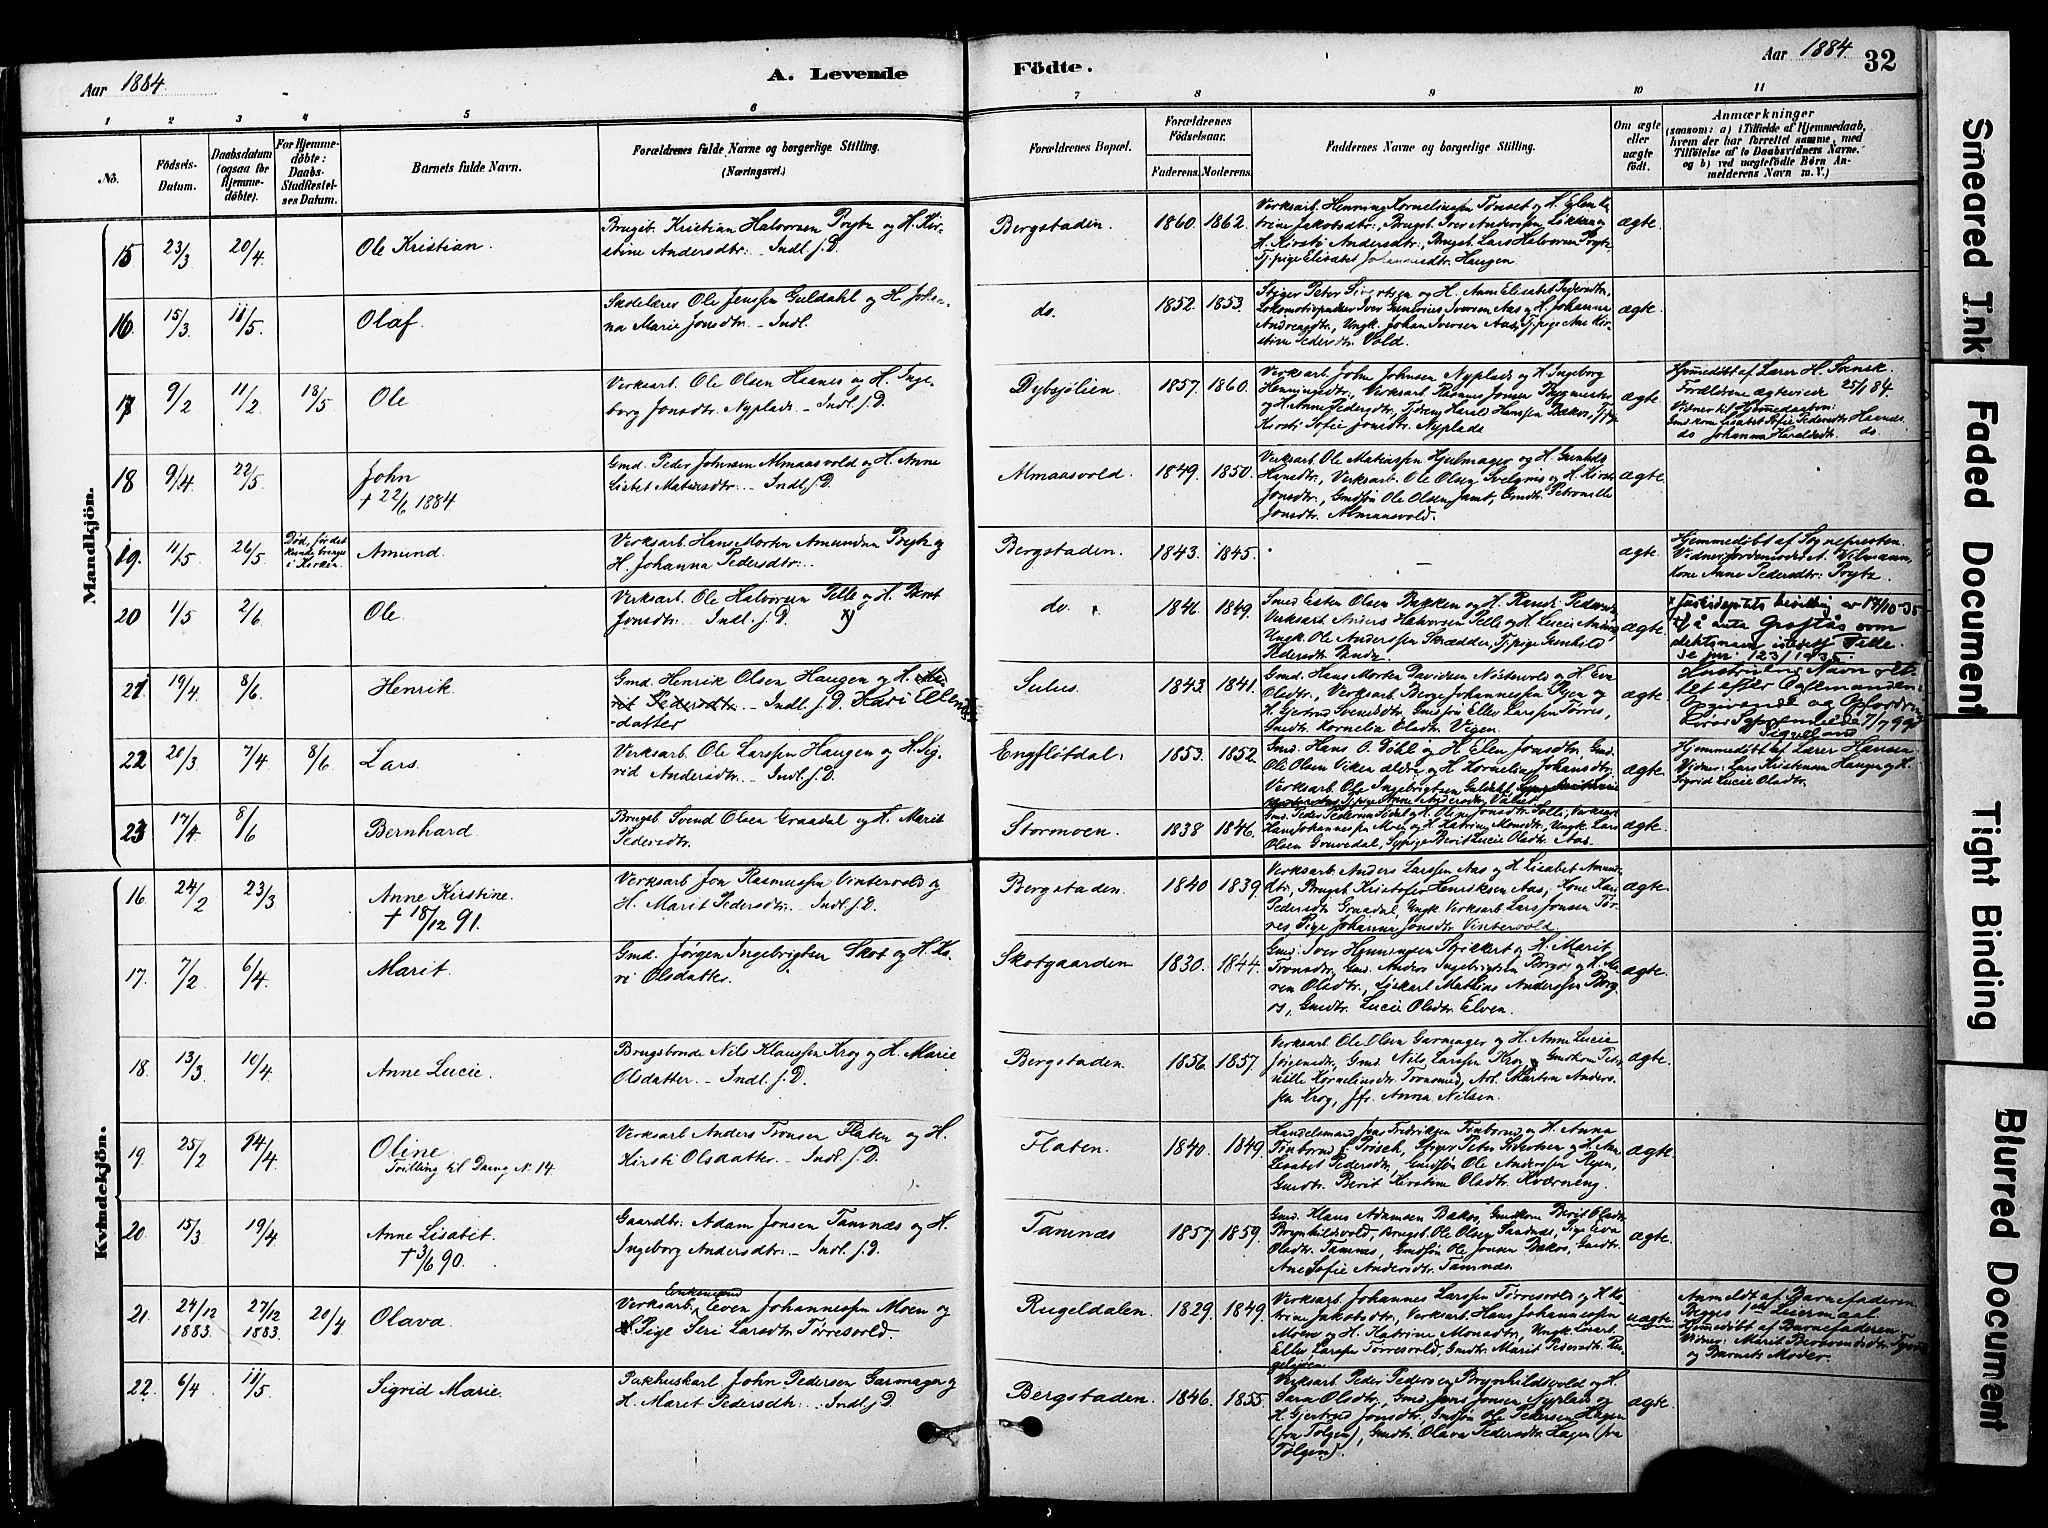 Aar 1884.
A. Levende
Födte.
Aar 1884.
32
1 2 3 4 5 6 7 8 9 10 11
No.
Födsels-
Datum.
Daabsdatum
(ogsaa for
Hjemme-
døbte).
For Hjemme-
døbte:
Daabs-
Stadfæstel-
ses Datum.
Barnets fulde Navn.
Forældrenes fulde Navne og borgerlige Stilling.
(Næringsvei.)
Forældrenes Bopæl.
Forældrenes
Födselsaar.
Faderens. Moderens.
Faddernes Navne og borgerlige Stilling.
Om ægte
eller
uægte
födt.
Anmærkninger
(saasom: a) i Tilfælde af Hjemmedaab,
hvem der har forrettet samme, med
Tilföielse af to Daabsvidners Navne,
og b) ved uægtefödte Börn An-
melderens Navn m. V.)
Mandkjön.
15 23/3 20/4 Ole Kristian.
Brugsb. Kristian Halvorsen Prytz og H. Kir-
stine Andersdtr. – Indl. f. D.
Bergstaden 1860. 1862.
Verksarb. Henning Kornelinssen Tønset og H. Elen Ka-
trine Jakobsdtr., Brugsb. Iver Anderssen Løkken og
H. Kirsti Andersdtr., Brugsb. Lars Halvorsen Prytz,
Tj.pige Elisabet Johannesdtr. Haugen.
ægte.
16 15/3 11/5 Olaf.
Skolelærer Ole Jenssen Guldahl og H. Johan-
na Marie Jonsdtr. – Indl.
do. 1852. 1853.
Stiger Peter Sivertsen og H. Ane Elisabet Pedersdtr.,
Andreasdtr., Ungk. Johan Iversen Aas, Tj.pige Ane Kir-
stine Pedersdtr. Vold.
ægte.
17 9/2 11/2 18/5 Ole
Verksarb. Ole Olsen Haanes og H. Inge-
borg Jonsdtr. Nyplads – Indl. f. D.
Dybsjølien 1857. 1860.
Verksarb. John Johnsen Nyplads og H. Ingeborg
Henningsdtr., Verksarb. Rasmus Jonsen Bygmester
og H. Anne Pedersdtr., Tjdreng Harald Hanssen Bakos, Tj.p.
Kirsti Sofie Jonsdtr. Nyplads
ægte.
Hjemmedøbt af Lærer H. Sansk.
Forældrene ægteviede 25/1 84.
Vidner til Hjemmedaaben:
Gmdkone Lisabet Sofie Pedersdtr. Haanes
do Johanna Haraldsdtr. do.
18 9/4 22/5 John
† 22/6 1884
Gmd. Peder Johnsen Almaasvold og H. Anne
Lisbet Matiasdtr. – Indl. f. D.
Almaasvold. 1849. 1850.
Verksarb. Ole Matiassen Hjulmager og H. Gunhild
Hansdtr., Verksarb. Ole Olsen Svelgmo og H. Kirsti
Jonsdtr., Gmdsøn Ole Olsen Jamt, Gmdt. Petronille
Jonsdtr. Almaasvold.
ægte.
19. 11/5 26/5
Død, før det
kunde bringes
i Kirken.
Amund.
Verksarb. Hans Morten Amundsen Prytz og
H. Johanna Pedersdtr.
Bergstaden. 1843. 1845.
–
ægte
Hjemmedøbt af Sognepresten.
Vidner: Jordemoder A. Wilmann,
Kone Anne Pedersdtr. Prytz.
20 1/5 2/6 Ole
Verksarb. Ole Halvorsen Telle og H. Berit
Jonsdtr. – Indl. f. D. x)
do. 1846. 1849.
Smed Esten Olsen Bakken og H. Randi Pedersdtr.,
Verksarb. Anders Halvorsen Telle og H. Lucie Andersd.,
Ungk. Ole Anderssen Skrædder, Tj.pige Gunhild
Pedersdtr.
ægte.
bevilling av 19/10-35
til å anta Grøftås som
slektsnavn istedetf. Telle.
se jnr. 123/1935
21 19/4 8/6 Henrik.
Gmd. Henrik Olsen Haugen og H. Ma-
rit Pedersdtr. – Indl. f. D. Kari Ellends-
datter
Sulus. 1843. 1841.
Gmd. Hans Morten Davidsen Nøstervold og H. Eva
Olsdtr., Verksarb. Berge Johannessen Røen og
H. Gjertrud Svensdtr., Gmdsøn Eller Larssen Tørres,
Gmdt. Kornelia Olsdtr. Vigen.
ægte
Hustruens Navn ret-
tet efter Ægtemandens
Opgivende og Opfordring
7/7 99
Sigveland
22 20/3 7/4 8/6 Lars.
Verksarb. Ole Larssen Haugen og H. Sig-
rid Andersdtr. – Indl. f. D.
Engfløtdal: 1853. 1852.
Gmd. Hans O. Gøhl og H. Elen Jonsdtr. Gmd.
Ole Olsen Viken ældre og H. Kornelia Johansdtr.
Verksarb. Ole Ingebrigtsen Guldahl
ægte.
Hjemmedøbt af Lærer Hansen
Vidner: Lars Kristensen Haugen og H.
Sigrid Lucie Olsdtr.
23 17/4 8/6 Bernhard.
Brugsb. Svend Olsen Graadal og H. Marit
Pedersdtr.
Stormoen. 1838 1846.
Hans Johannessen Moen og H. Katrine Monsdtr., Ungk. Lars
Olsen Gruvedal, Sypige Berit Lucie Olsdtr. Aas.
ægte.
Kvindekjön.
16 24/2 23/3 Anne Kirstine.
† 18/12 91.
Verksarb. Jon Rasmussen Vintervold og
H. Marit Pedersdtr. – Indl. f. D.
Bergstaden. 1840 1839.
Verksarb. Anders Larssen Aas og H. Lisabet Amunds-
dtr., Brugsb. Kristofer Henriksen Aas, Kone Kari
Pedersdtr. Graadal, Ungk. Verksarb. Lars Jonsen Tør-
res, Pige Johanna Jonsdtr. Vintervold.
ægte.
17. 7/2 6/4 Marit.
Gmd. Jørgen Ingebrigtsen Skot og H. Ka-
ri Olsdatter.
Skotgaarden 1830. 1844.
Gmd. Iver Henningsen Sprikkert og H. Marit
Tronsdtr., Gmd. Anders Ingebrigtsen Borgos og H. Ma-
ren Olsdtr., Løskarl Mathias Anderssen Borg-
os, Gmdtr. Lucie Olsdtr. Elven.
ægte.
18. 13/3 10/4 Anne Lucie.
Brugsbonde Nils Klaussen Krog og H. Marie
Olsdatter. – Indl. f. D.
Bergstaden. 1856. 1857.
Verksarb. Ole Olsen Garmager og H. Anne Lucie
Jørgensdtr., Gmd. Nils Larssen Krog, Gmdkone Petro-
nille Kornelinsdtr. Tronsmed, Arb. Martin Anders-
sen Krog, Jfr. Anna Nilsen.
ægte.
19. 25/2 14/4 Oline.
Tvilling til Dreng N. 14
Verksarb. Anders Tronsen Flaten og H.
Kirsti Olsdatter. – Indl. f. D.
Flaten. 1840. 1849.
Handelsmand Jens Fredriksen Finborud og H. Anna
Finborud f. Prösch, Stiger Peter Sivertsen og H. Ane
Lisabet Pedersdtr., Gmdsøn Ole Anderssen Ryen,
Gmdtr. Berit Kirstine Olsdtr. Kværneng.
ægte.
20. 15/3 19/4 Anne Lisabet.
† 3/6 90.
Gaardbr. Adam Jonsen Tamnæs og H.
Ingeborg Andersdtr. – Indl. f. D.
Tamnæs 1857 1859.
Gmd. Klaus Adamsen Bakos, Gmdkone Berit Olsdtr.
Brynhildsvold, Brugsb. Ole Olsen Sandnæs, Pige Eva
Olsdtr. Tamnæs, Gmdsøn Ole Jonsen Bakos, Gmdtr.
Ane Sofie Andersdtr. Tamnæs.
ægte.
21. 24/12 1883. 27/12 1883. 20/4 Olava.
Enkemand
Verksarb. Even Johannessen Moen og
Pige Siri Larsdtr. Tørresvold.
Rugeldalen. 1829. 1849.
Verksarb. Johannes Larssen Tørresvold og H. Ka-
trine Jakobsdtr., Verksarb. Hans Johannessen
Moen og H. Katrine Monsdtr., Ungk. Løsarb.
Eller Larssen Tørresvold, Gmdtr. Marit Pedersdtr. Ru-
geldalen
uægte
Anmeldt af Barnefaderen.
Begges 1ste Leiermaal.
Hjemmedøbt af Barnefaderen.
og Barnets Moder.
22. 6/4 11/5 Sigrid Marie.
Pakhuskarl John Pedersen Garmager og
H. Maret Pedersdtr. – Indl. f. D.
Bergstaden. 1846. 1855.
Verksarb. Peder Pedersen Brynhildsvold og H.
Sara Olsdtr., Gmd. Jens Jonsen Nyplads og
H. Gjertrud Jonsdtr., Gmdsøn Ole Pedersen Hagen
(fra Tolgen), Gmdtr. Olava Pedersdtr. Hagen (fra
Tolgen).
ægte.
Smeared Ink
Faded Document
Tight Binding
Blurred Document